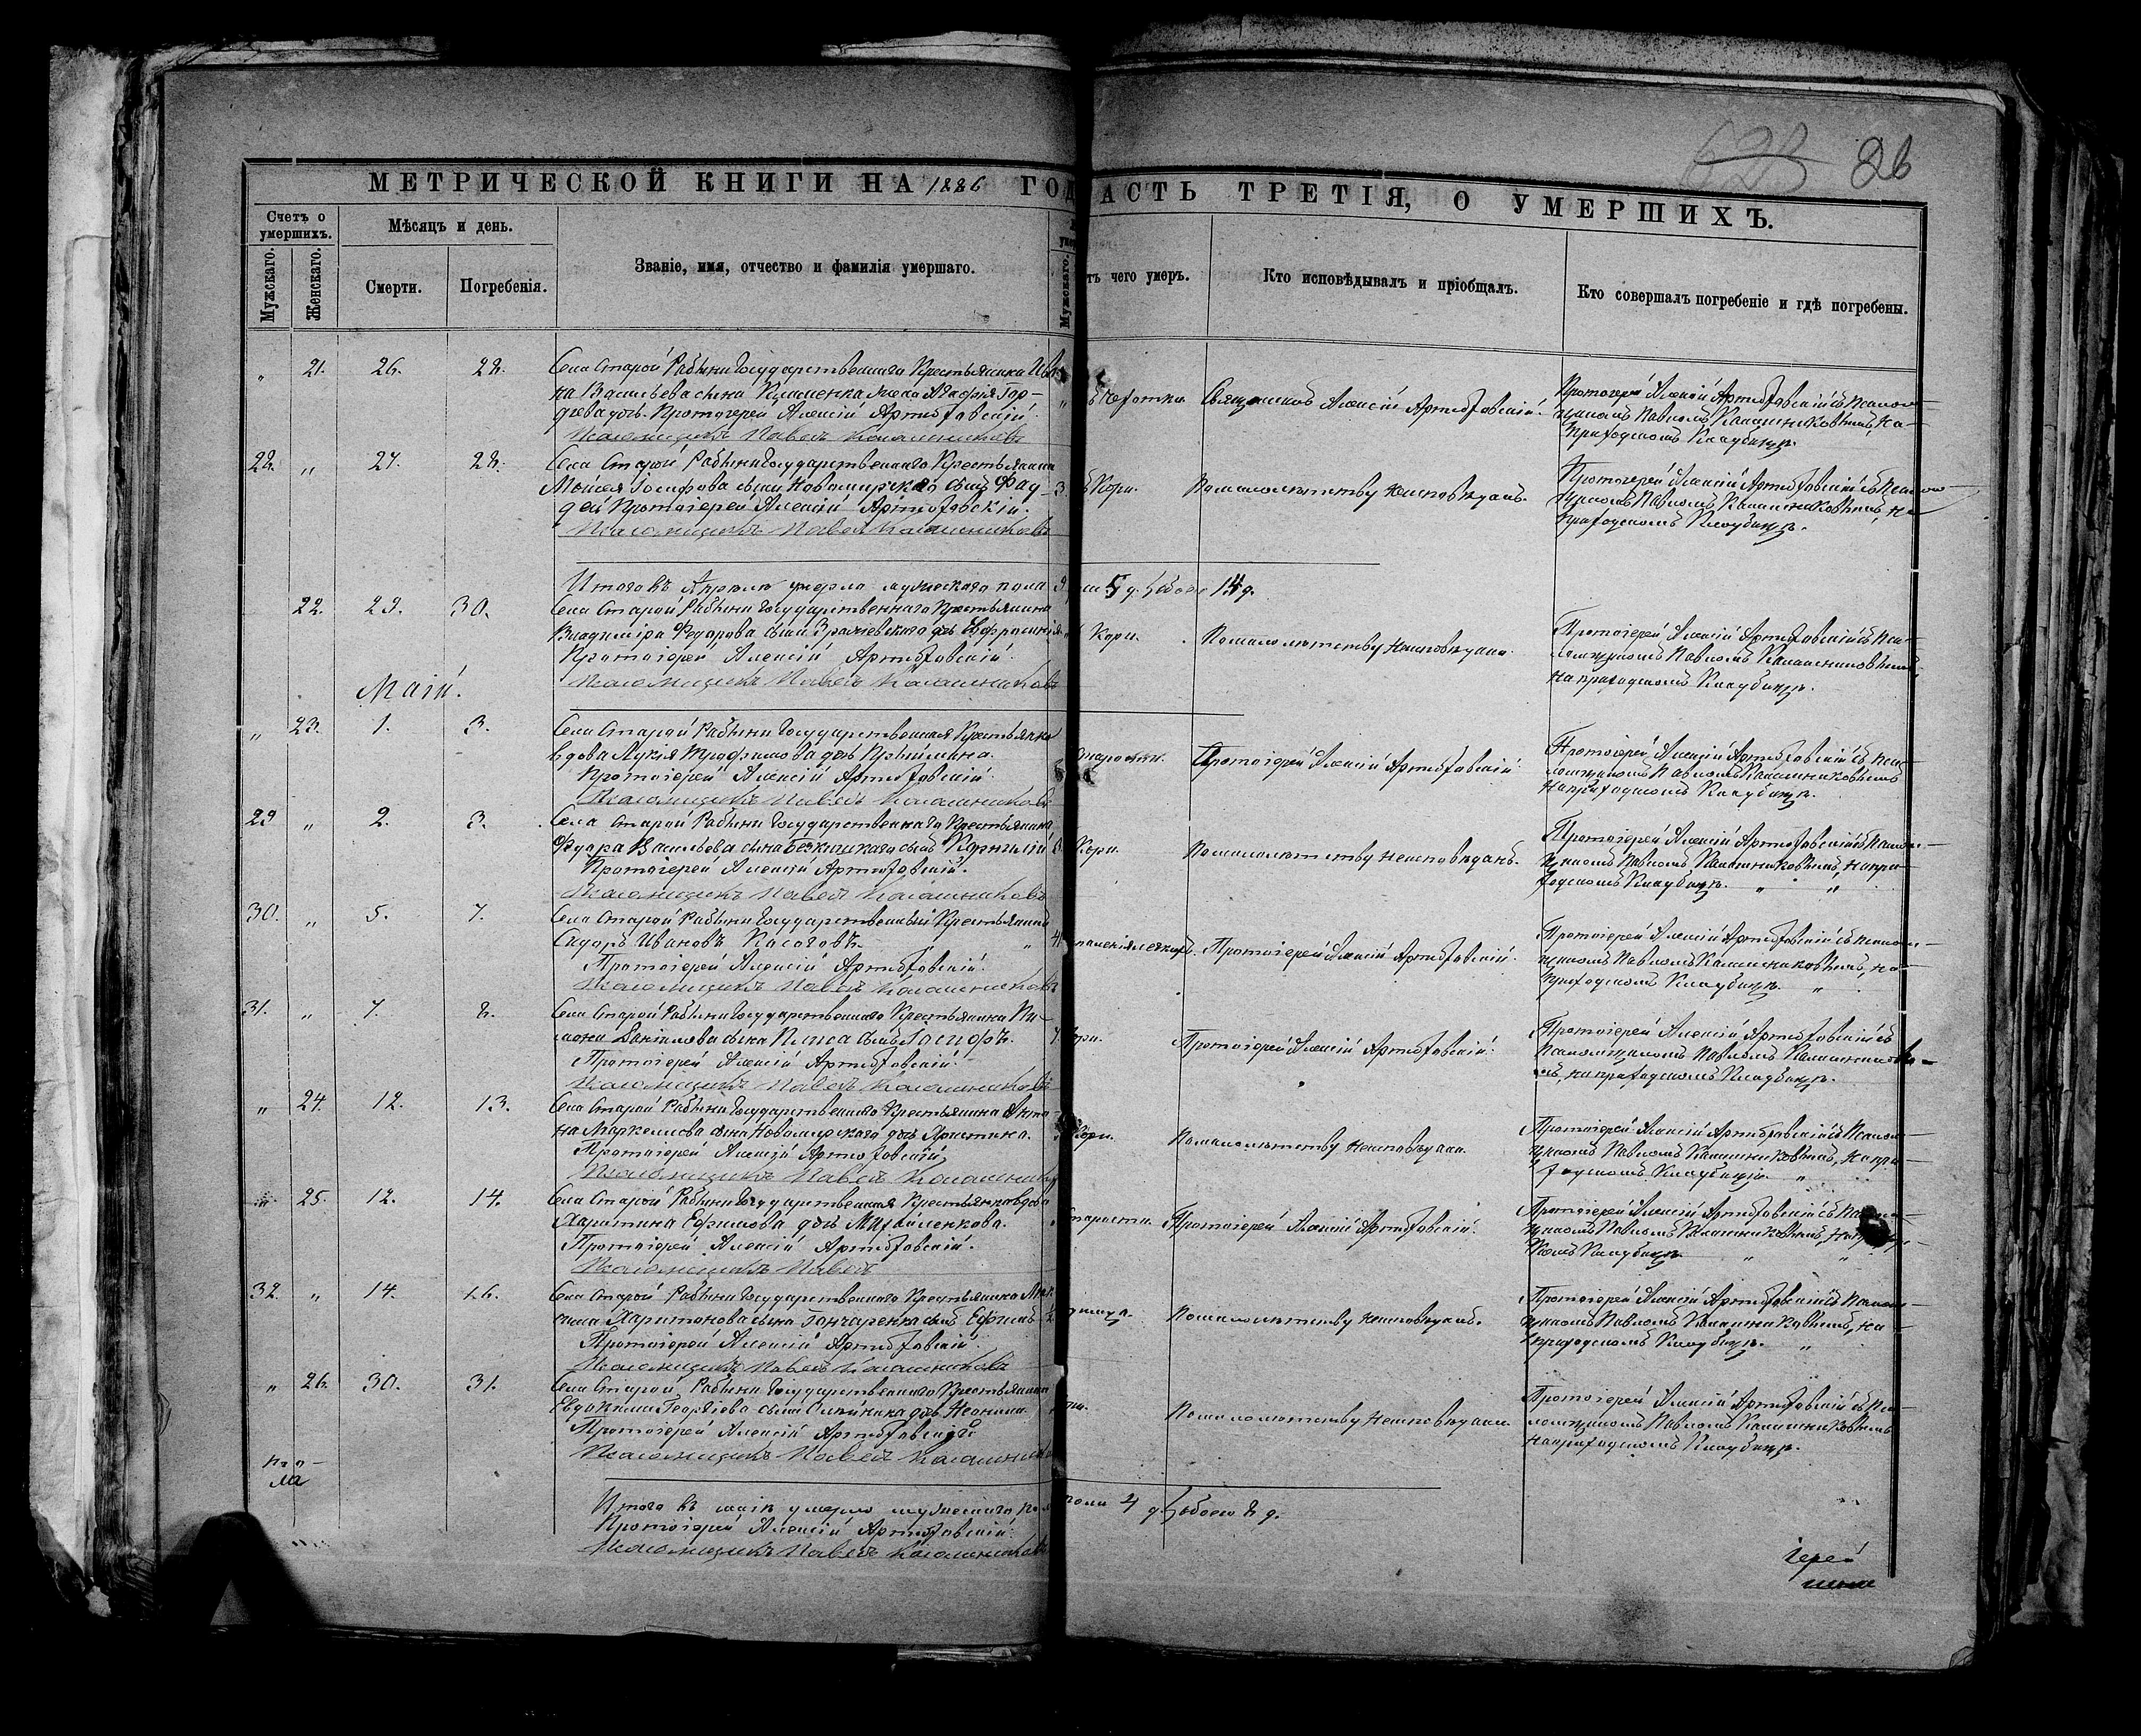 628 86
МЕТРИЧЕСКОЙ КНИГИ НА 1886 ГОД
АСТЬ ТРЕТІЯ, О УМЕРШИХЪ.
Счетъ о умершихъ.
Мужскаго.
Женскаго.
Мѣсяцъ и день.
Смерти.
Погребенія.
Званіе, имя, отчество и фамилія умершаго.
Мужскаго.
тъ чего умеръ.
Кто исповѣдывалъ и пріобщалъ.
Кто совершалъ погребеніе и гдѣ погребены.
„ 21. 26. 28. Села Старой Рябыни Государственнаго Крестьянина Ива
на Васильева сына жена Агафія Гор-
дѣева дочь. Протоіерей Алексій Артюховскій.
Псаломщикъ Павелъ Калашниковъ
Чахотки. Священникъ Алексій Артюховскій.
Протоіерей Алексій Артюховскій съ Псалом-
щикомъ Павломъ Калашниковымъ, на
Приходскомъ Кладбищѣ.
28. „ 27. 28. Села Старой Рябыни Государственнаго Крестьянина
Моисея Іосифова сына Новомирскаго сынъ Фад-
дей Протоіерей Алексій Артюховскій.
Псаломщикъ Павелъ Калашниковъ
3 Кори. По малолѣтству неисповѣданъ.
Протоіерей Алексій Артюховскій съ Псалом-
щикомъ Павломъ Калашниковымъ, на
Приходскомъ Кладбищѣ.
Итого въ Апрѣлѣ умерло мужескаго пола 9
5 д. обоего 14 д.
22. 29. 30. Села Старой Рябыни Государственнаго Крестьянина
Владиміра Федорова сына дочь Ефросинія
Протоіерей Алексій Артюховскій.
Псаломщикъ Павелъ Калашниковъ
Кори. По малолѣтству неисповѣдана.
Протоіерей Алексій Артюховскій съ Пса-
ломщикомъ Павломъ Калашниковымъ
на приходскомъ Кладбищѣ.
Май.
„ 23. 1. 3. Села Старой Рябыни Государственная Крестьянка
вдова Лукія Трофимова дочь
Протоіерей Алексій Артюховскій.
Псаломщикъ Павелъ Калашниковъ
старости. Протоіерей Алексій Артюховскій.
Протоіерей Алексій Артюховскій съ Пса-
ломщикомъ Павломъ Калашниковымъ
на приходскомъ Кладбищѣ.
29 „ 2. 3. Села Старой Рябыни Государственнаго Крестьянина
Федора Васильева сына сынъ Корнилій
Протоіерей Алексій Артюховскій.
Псаломщикъ Павелъ Калашниковъ
Кори. По малолѣтству неисповѣданъ.
Протоіерей Алексій Артюховскій съ Псалом-
щикомъ Павломъ Калашниковымъ, на при-
ходскомъ Кладбищѣ. „ „
30. „ 5. 7. Села Старой Рябыни Государственный Крестьянинъ
Сидоръ Ивановъ Касоговъ. „ 4
Протоіерей Алексій Артюховскій.
Псаломщикъ Павелъ Калашниковъ
паленія легкихъ. Протоіерей Алексій Артюховскій.
Протоіерей Алексій Артюховскій съ Псалом-
щикомъ Павломъ Калашниковымъ, на
приходскомъ Кладбищѣ. „
31. „ 7. 8. Села Старой Рябыни Государственнаго Крестьянина
Данилова сына сынъ Іосифъ. 7
Протоіерей Алексій Артюховскій.
Псаломщикъ Павелъ Калашниковъ
ори. Протоіерей Алексій Артюховскій.
Протоіерей Алексій Артюховскій съ
Псаломщикомъ Павломъ Калашниковы-
мъ, на приходскомъ Кладбищѣ.
„ 24. 12. 13. Села Старой Рябыни Государственнаго Крестьянина Анто
на Маркелова сына Новомирскаго дочь Христина.
Протоіерей Алексій Артюховскій
Псаломщикъ Павелъ Калашников
Кори. По малолѣтству неисповѣдана.
Протоіерей Алексій Артюховскій съ Псалом-
щикомъ Павломъ Калашниковымъ, на при-
ходскомъ Кладбищѣ. „
„ 25. 12. 14. Села Старой Рябыни Государственная Крестьянка вдова
Харитина Ефимова дочь Михайленкова.
Протоіерей Алексій Артюховскій.
Псаломщикъ Павелъ
старости. Протоіерей Алексій Артюховскій.
Протоіерей Алексій Артюховскій съ
щикомъ Павломъ Калашниковымъ,
Кладбищѣ „ „
32. „ 14. 16. Села Старой Рябыни Государственнаго Крестьянина Мак
сима Харитонова сына Гончаренка сынъ Ефимъ
Протоіерей Алексій Артюховскій.
Псаломщикъ Павелъ Калашниковъ
По малолѣтству неисповѣданъ.
Протоіерей Алексій Артюховскій съ Псалом-
щикомъ Павломъ Калашниковымъ, на
приходскомъ Кладбищѣ. „
„ 26. 30. 31. Села Старой Рябыни Государственнаго Крестьянина
Евдокима Георгіева сына Олейника дочь Неонила
Протоіерей Алексій Артюховскій
Псаломщикъ Павелъ Калашников
По малолѣтству неисповѣдана.
Протоіерей Алексій Артюховскій съ Пса-
ломщикомъ Павломъ Калашниковымъ
на приходскомъ Кладбищѣ.
Итого въ маѣ умерло мужескаго по
пола 4 д. обоего 8 д.
Протоіерей Алексій Артюховскій.
Псаломщикъ Павелъ Калашниковъ
Іерей